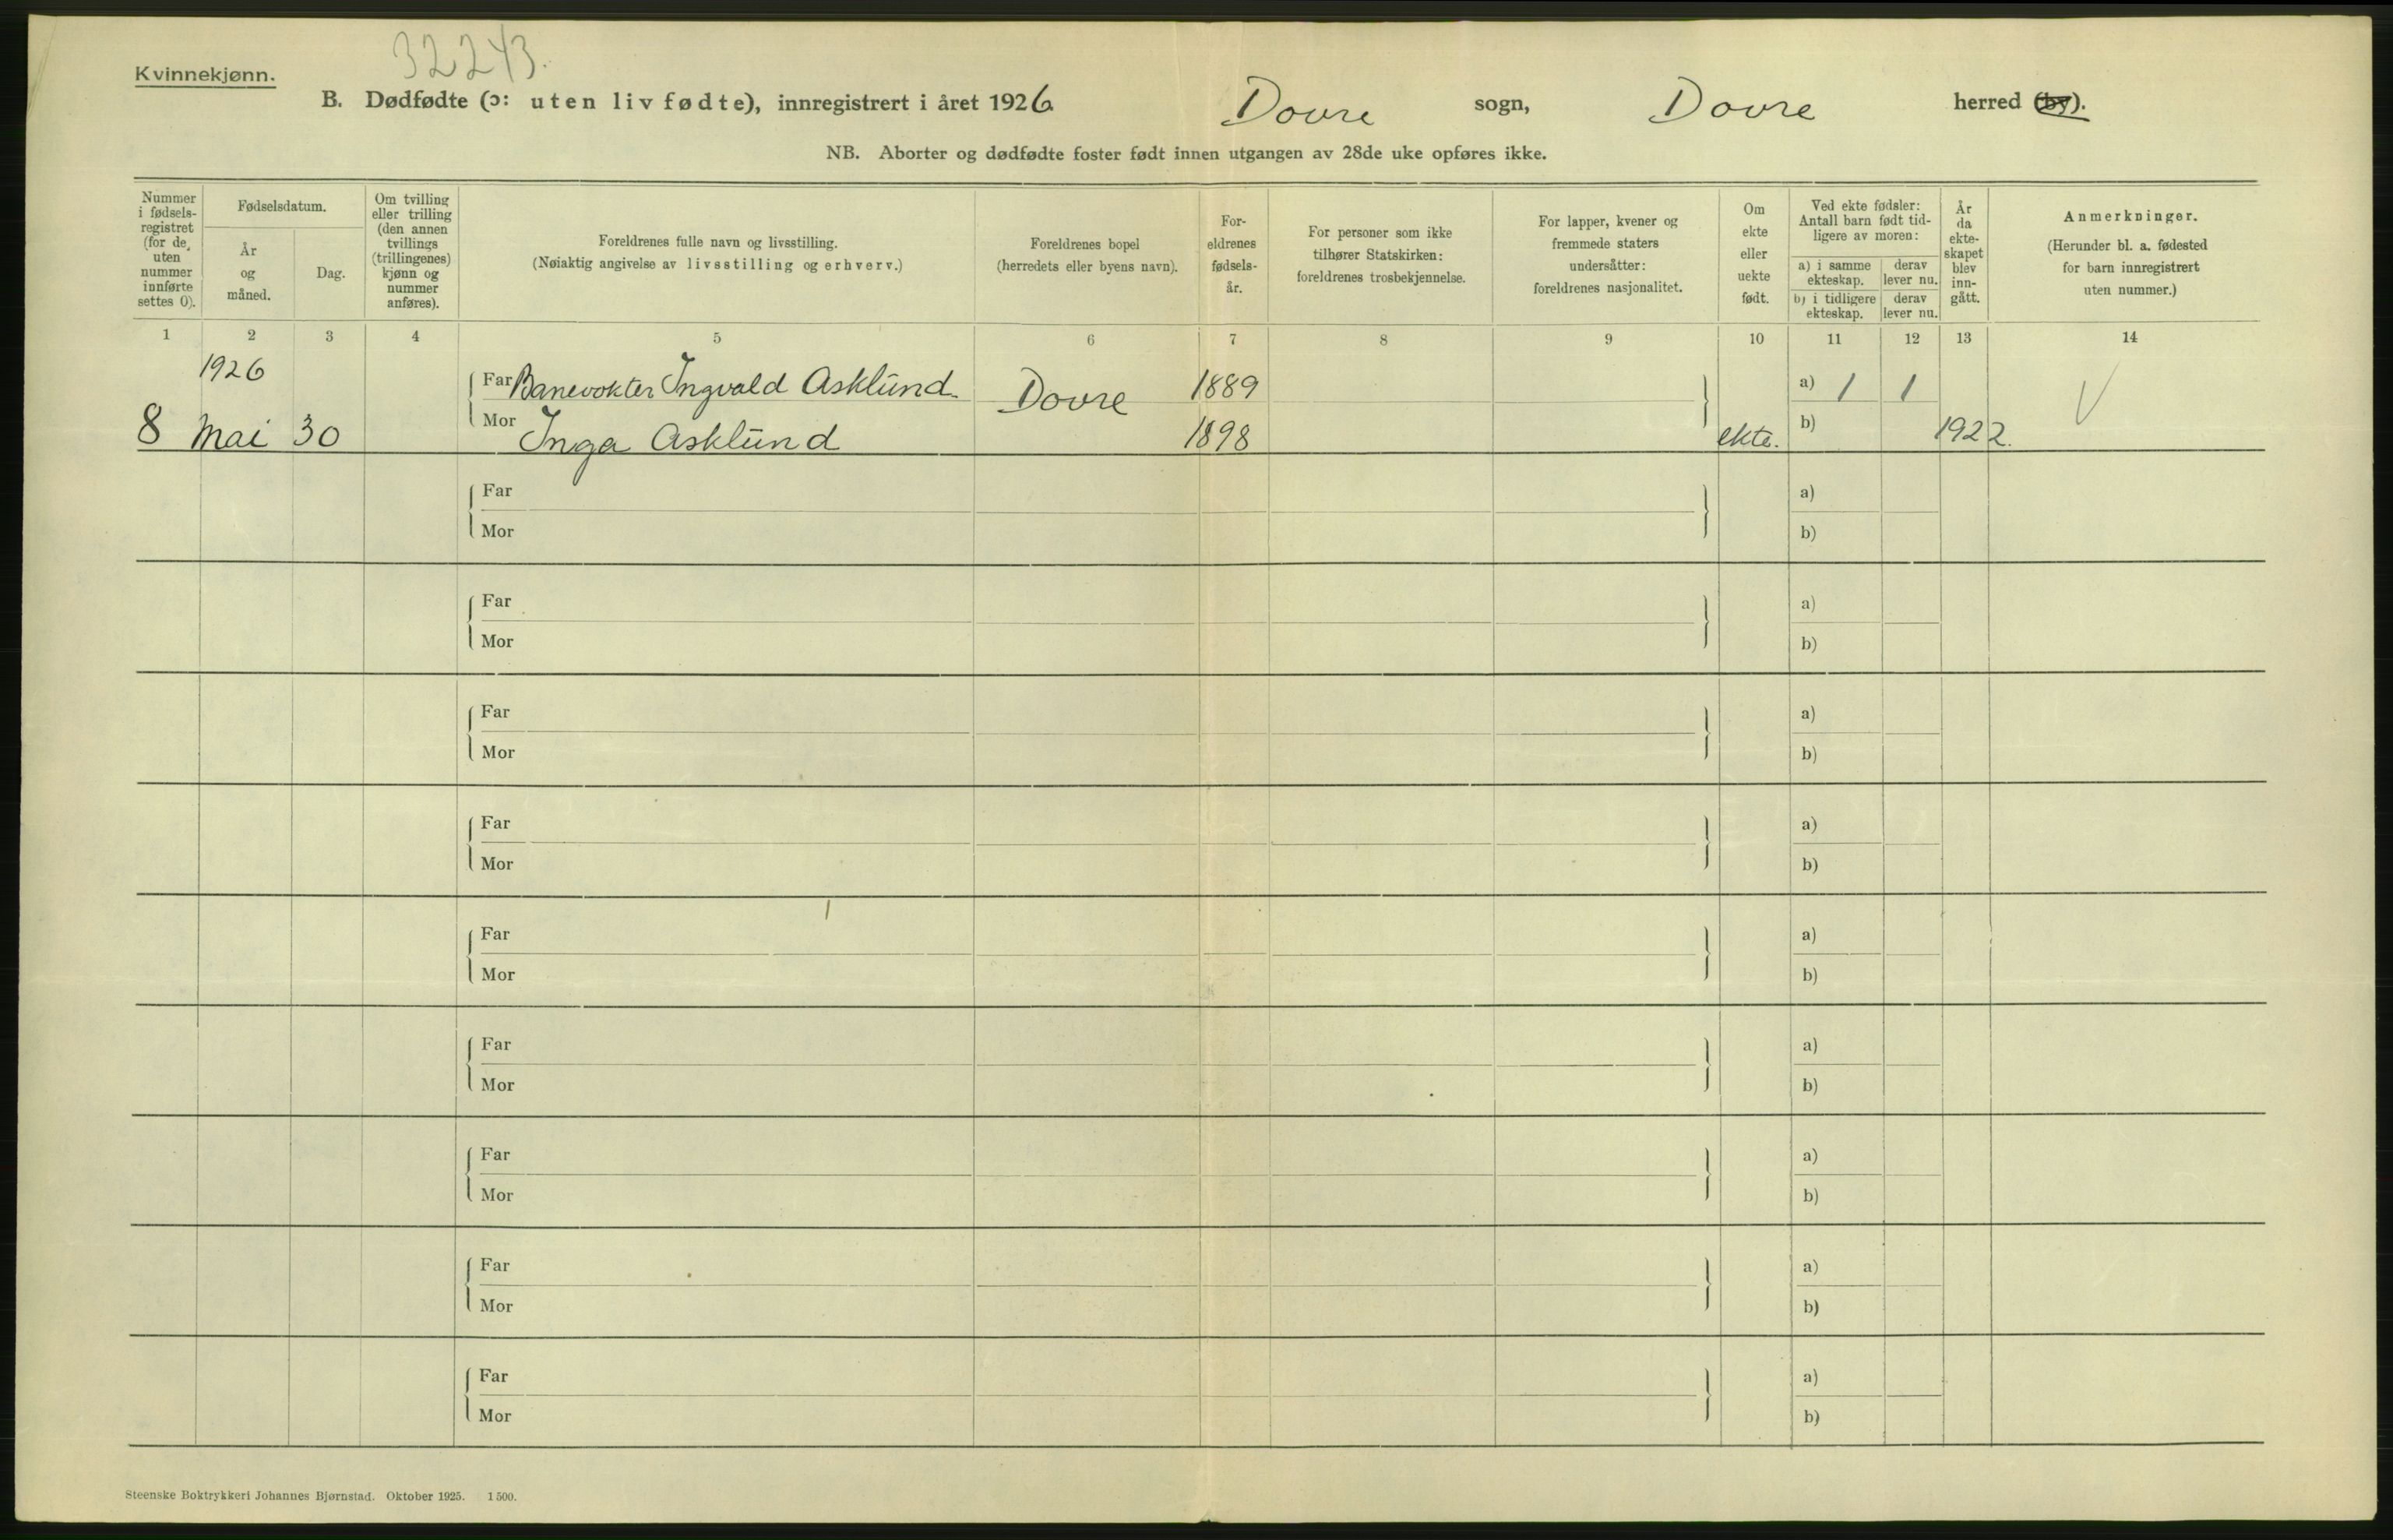 32243.
Kvinnekjønn.
B. Dødfødte (ɔ: uten liv fødte), innregistrert i året 1926 Dovre sogn, Dovre herred (by).
NB. Aborter og dødfødte foster født innen utgangen av 28de uke opføres ikke.
Nummer i fødsels- registret (for de uten nummer innførte settes 0).
Fødselsdatum.
År og måned.
Dag.
Om tvilling eller trilling (den annen tvillings (trillingenes) kjønn og nummer anføres).
Foreldrenes fulle navn og livsstilling.
(Nøiaktig angivelse av livsstilling og erhverv.)
Foreldrenes bopel
(herredets eller byens navn).
For- eldrenes fødsels- år.
For personer som ikke tilhører Statskirken: foreldrenes trosbekjennelse.
For lapper, kvener og fremmede staters undersåtter: foreldrenes nasjonalitet.
Om ekte eller uekte født.
Ved ekte fødsler: Antall barn født tid- ligere av moren:
a) i samme ekteskap.
derav lever nu.
b) i tidligere ekteskap.
derav lever nu.
År da ekte- skapet blev inn- gått.
Anmerkninger.
(Herunder bl. a. fødested for barn innregistrert uten nummer.)
1 2 3 4 5 6 7 8 9 10 11 12 13 14
1926 Far Banevokter Ingvald Asklund. Dovre 1889 a) 1 1
8 Mai 30 Mor Inga Asklund 1898 ekte. b) 1922.
Far a)
Mor b)
Far a)
Mor b)
Far a)
Mor b)
Far a)
Mor b)
Far a)
Mor b)
Far a)
Mor b)
Far a)
Mor b)
Far a)
Mor b)
Far a)
Mor b)
Steenske Boktrykkeri Johannes Bjørnstad. Oktober 1925. 1500.